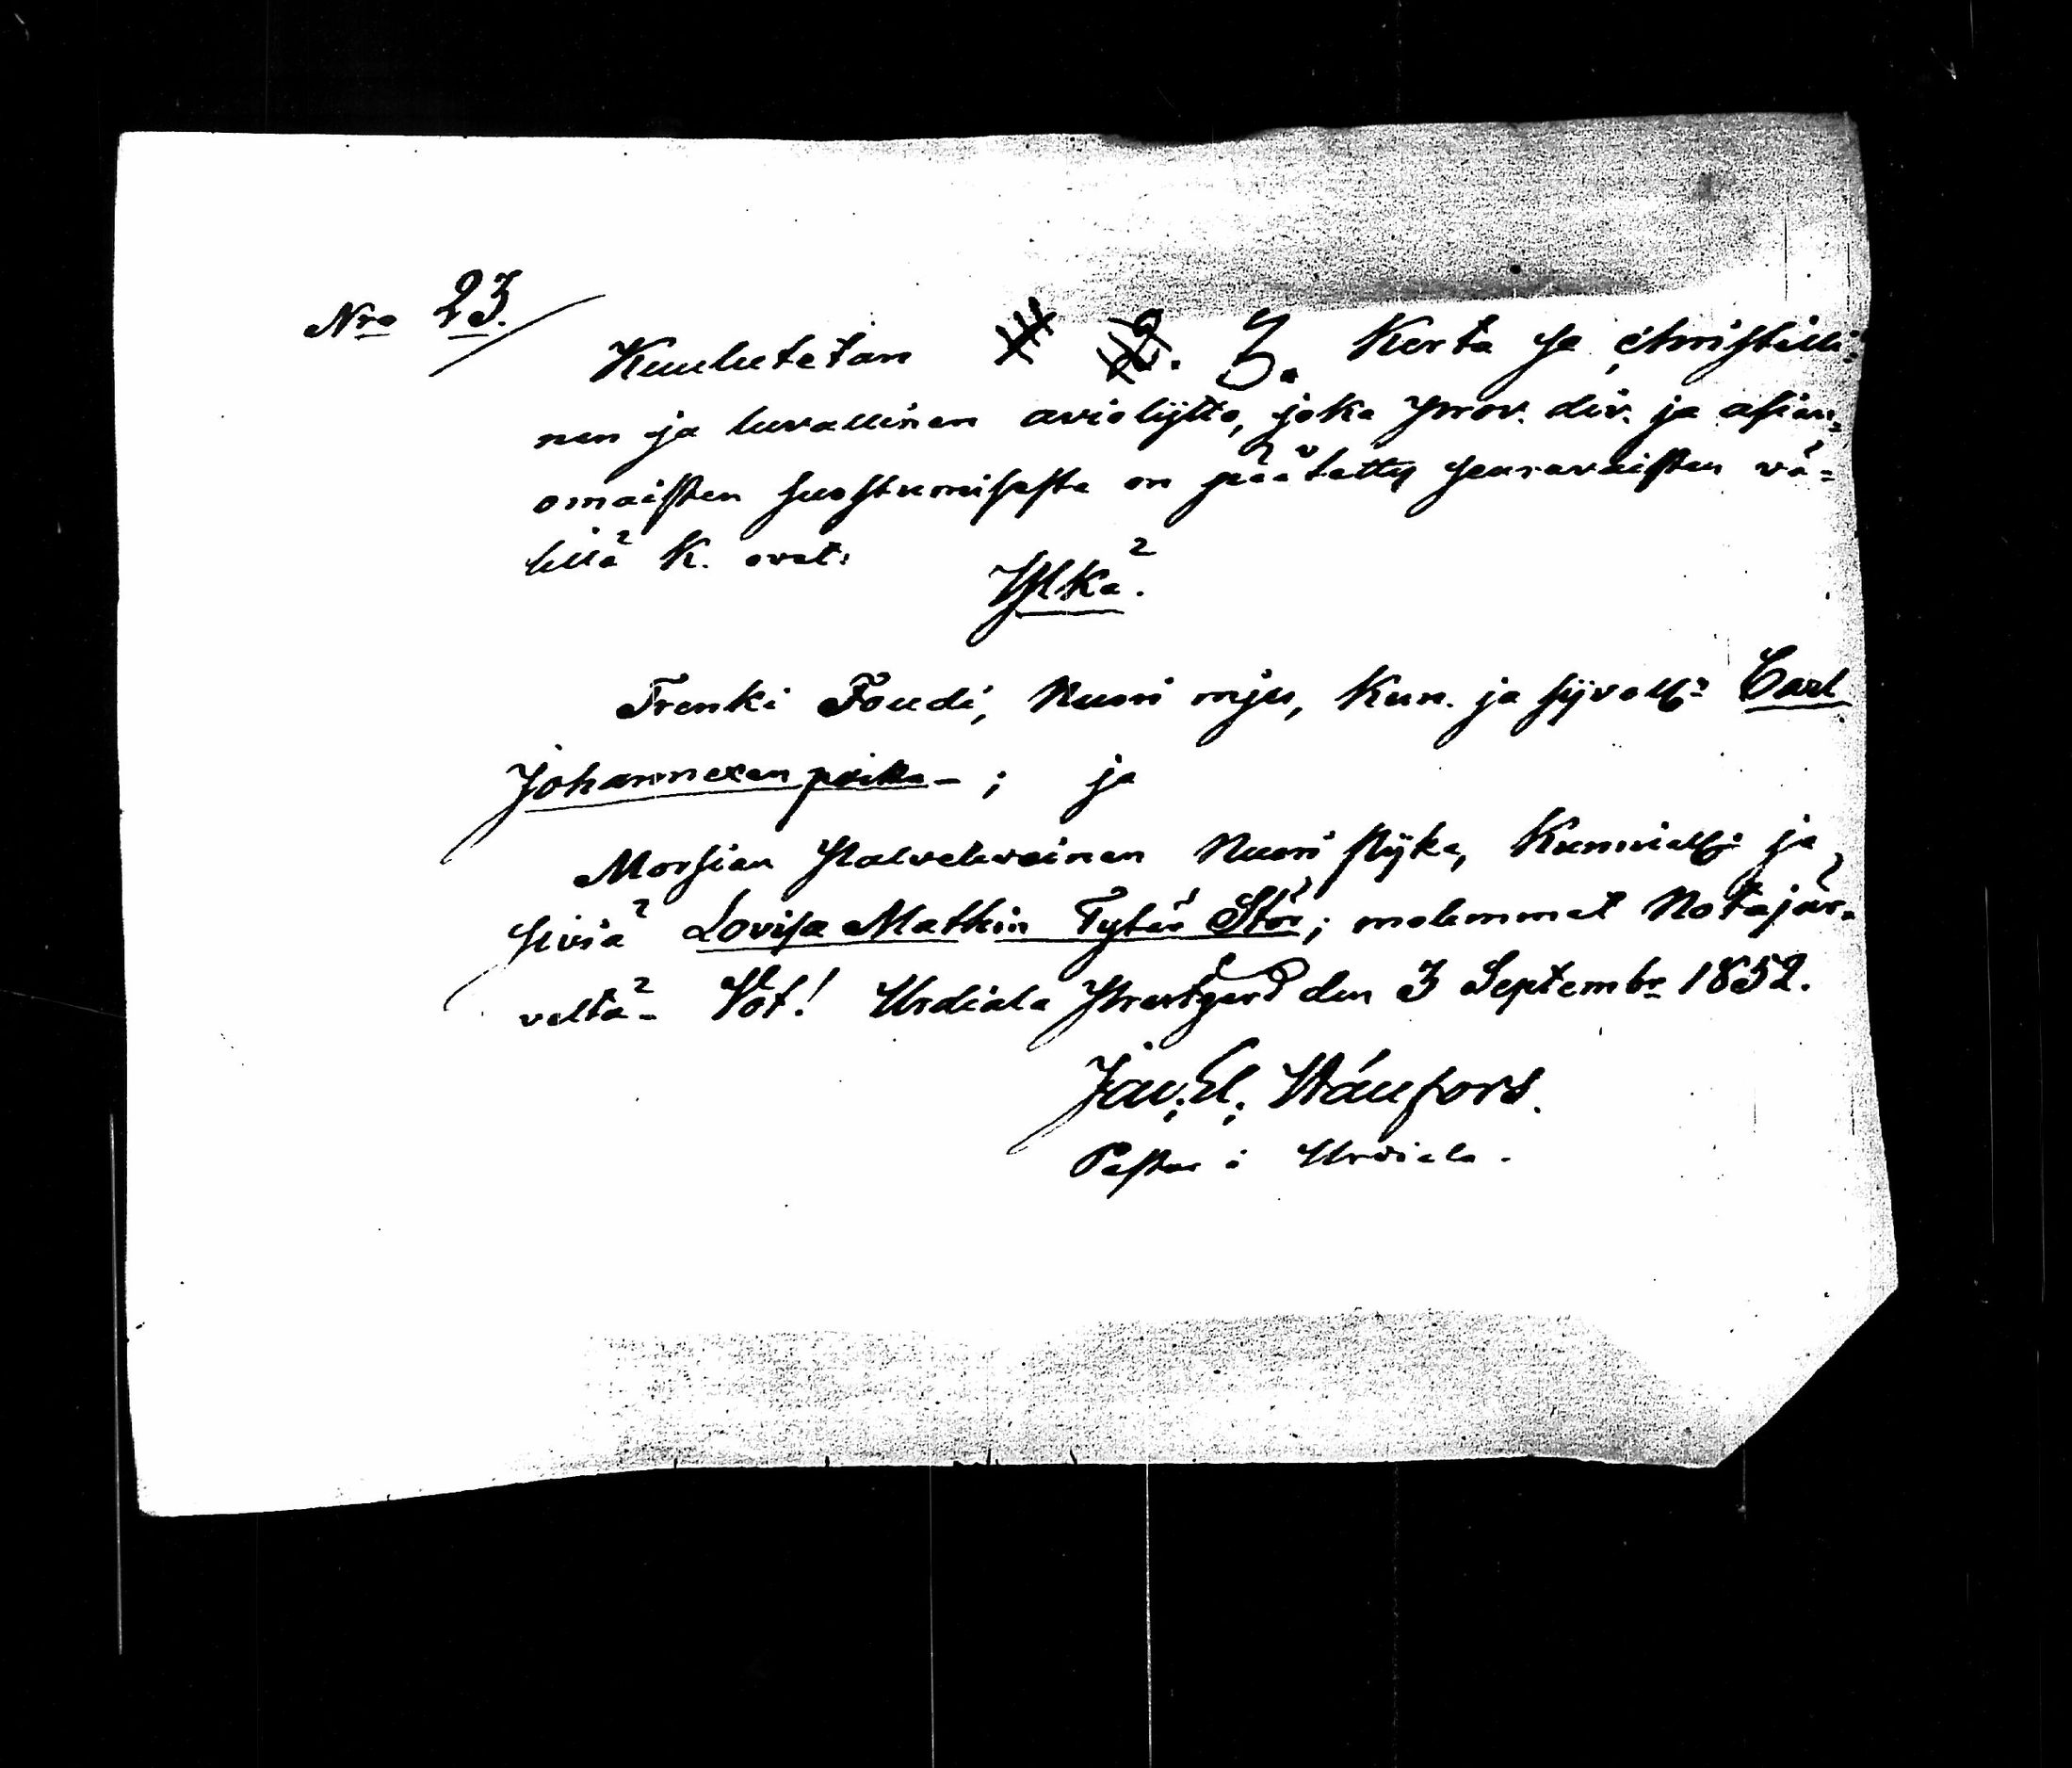 Nro 23.
Kuulutetan 3. Kerta se Christilli:
nen ja luvallinen aviolijtto, joka prov. div. ja asian:
omaisten suostumisesta on päätetty seuravaisten vä-
lillä K. ovat:
Ylkä.
Trenki Foudi, Nuori mjes, Kun. ja syväll: Carl
Johannexen poika - ; ja
Morsian Palvelevainen Nuori pijka, Kunniall: ja
siviä Lovisa Mathin Tytär Stör; molemmat Notajär-
veltä - Vot! Urdiala Prestgård den 3 Septembr 1852.
Pastor i Urdiala.